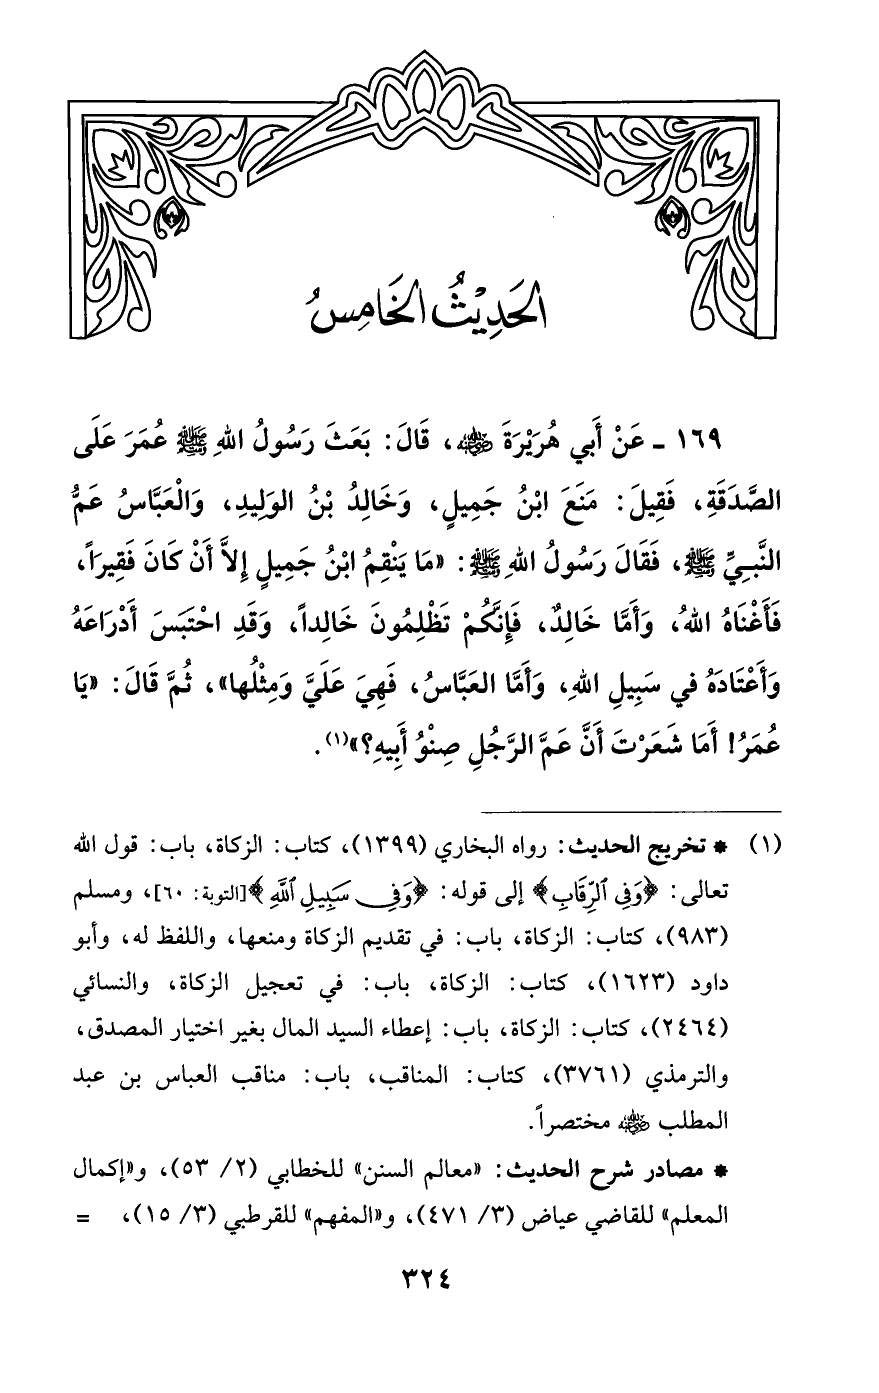 الحَدِيْثُ الخَامِسُ
١٦٩ ـ عَنْ أَبي هُرَيْرَةَ ﵁، قَالَ: بَعَثَ رَسُولُ اللهِ ﷺ عُمَرَ عَلَى
الصَّدَقَةِ، فَقِيلَ: مَنَعَ ابْنُ جَمِيلٍ، وَخَالِدُ بْنُ الوَلِيدِ، وَالْعَبَّاسُ عَمُّ
النَّبِيِّ ﷺ، فَقَالَ رَسُولُ اللهِ ﷺ: «مَا يَنْقِمُ ابْنُ جَمِيلٍ إِلاَّ أَنْ كَانَ فَقِيرَاً،
فَأَغْنَاهُ اللهُ، وَأَمَّا خَالِدٌ، فَإِنَّكُمْ تَظْلِمُونَ خَالِداً، وَقَدِ احْتَبَسَ أَدْرَاعَهُ
وَأَعْتَادَهُ في سَبِيلِ اللهِ، وَأَمَّا العَبَّاسُ، فَهِيَ عَلَيَّ وَمِثْلُها»، ثُمَّ قَالَ: «يَا
عُمَرُ! أَمَا شَعَرْتَ أَنَّ عَمَّ الرَّجُلِ صِنْوُ أَبِيهِ؟»(١).
(١) * تخريج الحديث: رواه البخاري (١٣٩٩)، كتاب: الزكاة، باب: قول الله
تعالى: ﴿وَفِي ٱلرِّقَابِ﴾ إلى قوله: ﴿وَفِي سَبِيلِ ٱللَّهِ﴾[التوبة: ٦٠]، ومسلم
(٩٨٣)، كتاب: الزكاة، باب: في تقديم الزكاة ومنعها، واللفظ له، وأبو
داود (١٦٢٣)، كتاب: الزكاة، باب: في تعجيل الزكاة، والنسائي
(٢٤٦٤)، كتاب: الزكاة، باب: إعطاء السيد المال بغير اختيار المصدق،
والترمذي (٣٧٦١)، كتاب: المناقب، باب: مناقب العباس بن عبد
المطلب ﵁ مختصراً.
* مصادر شرح الحديث: «معالم السنن» للخطابي (٢/ ٥٣)، و«إكمال
المعلم» للقاضي عياض (٣/ ٤٧١)، و«المفهم» للقرطبي (٣/ ١٥)، =
٣٢٤